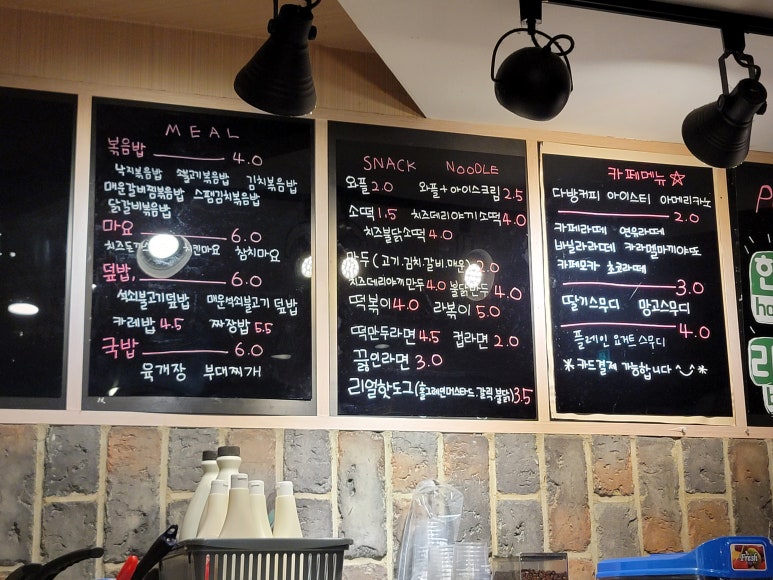 MEAL
볶음밥 4.0
낙지볶음밥 소불고기볶음밥 김치볶음밥
매운갈비찜볶음밥 스팸김치볶음밥
닭갈비볶음밥
마요 6.0
치즈돈까스 치킨마요 참치마요
덮밥 6.0
석쇠불고기덮밥 매운석쇠불고기 덮밥
카레밥 4.5 짜장밥 5.5
국밥 6.0
육개장 부대찌개
SNACK NOODLE
와플 2.0 와플+아이스크림 2.5
소떡 1.5 치즈데리야끼소떡 4.0
치즈불닭소떡 4.0
만두(고기.김치.갈비.매운) 2.0
치즈데리야끼만두 4.0 불닭만두 4.0
떡볶이 4.0 라볶이 5.0
떡만두라면 4.5 컵라면 2.0
끓인라면 3.0
리얼핫도그(홀그레인머스타드.갈릭.불닭) 3.5
카페메뉴 ☆
다방커피 아이스티 아메리카노
2.0
카페라떼 연유라떼
바닐라라떼 카라멜마끼야또
카페모카 초코라떼
3.0
딸기스무디 망고스무디
4.0
플레인 요거트스무디
*카드결제 가능합니다 ^‿^*
P
한
ho
Fresh